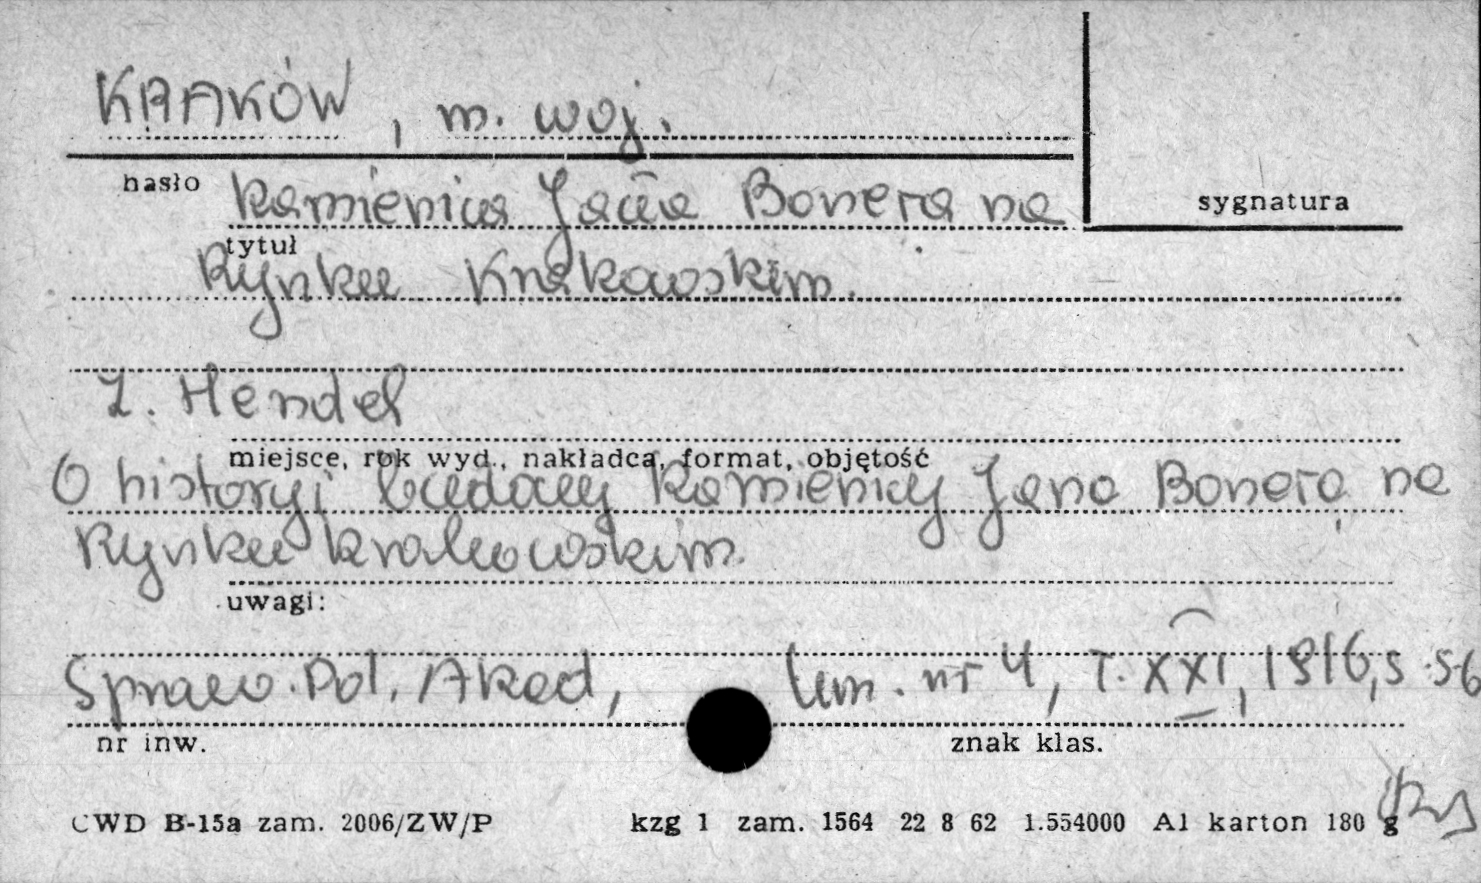 KRAKÓW, m. woj.
hasło
Kamienica Jana Bonera na
sygnatura
tytuł
Rynku Krakowskim.
Z. Hendel
miejsce, rok wyd., nakładca, format, objętość
O historyi budowy Kamienicy Jana Bonera na
Rynku krakowskim.
uwagi:
Spraw. Pol. Akad, Um. nr 4, T. XXI, 1916, s. 5-6
nr inw.
znak klas.
CWD B-15a zam. 2006/ZW/P kzg 1 zam. 1564 22 8 62 1.554000 A1 karton 180 g